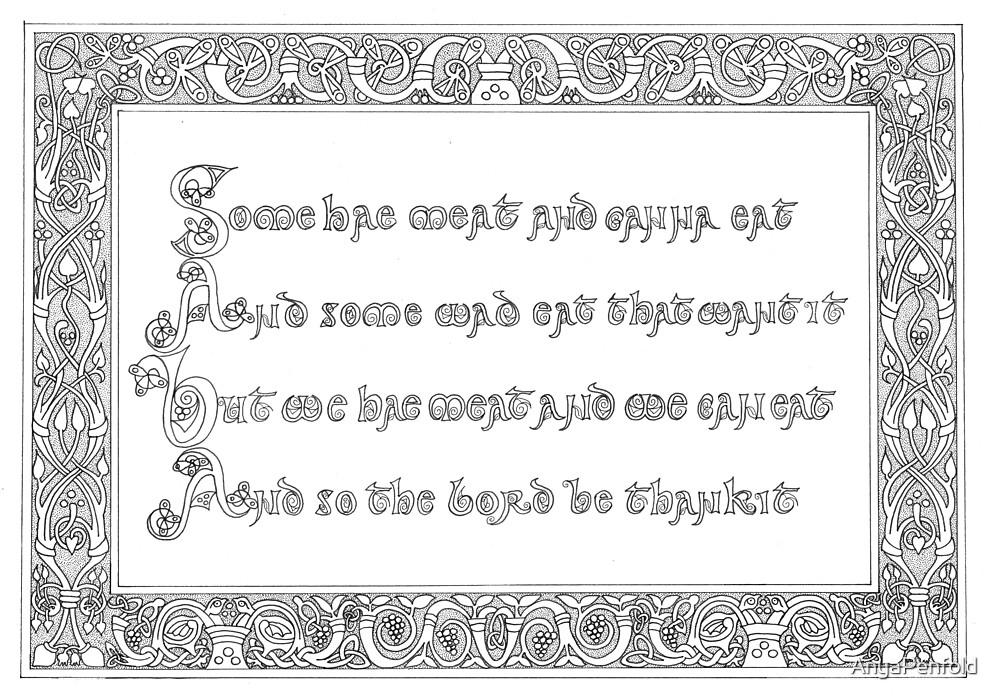 Some hae meat and canna eat
And some wad eat that want it
but we hae meat and we can eat
And so the Lord be thankit
AnyaPenfold